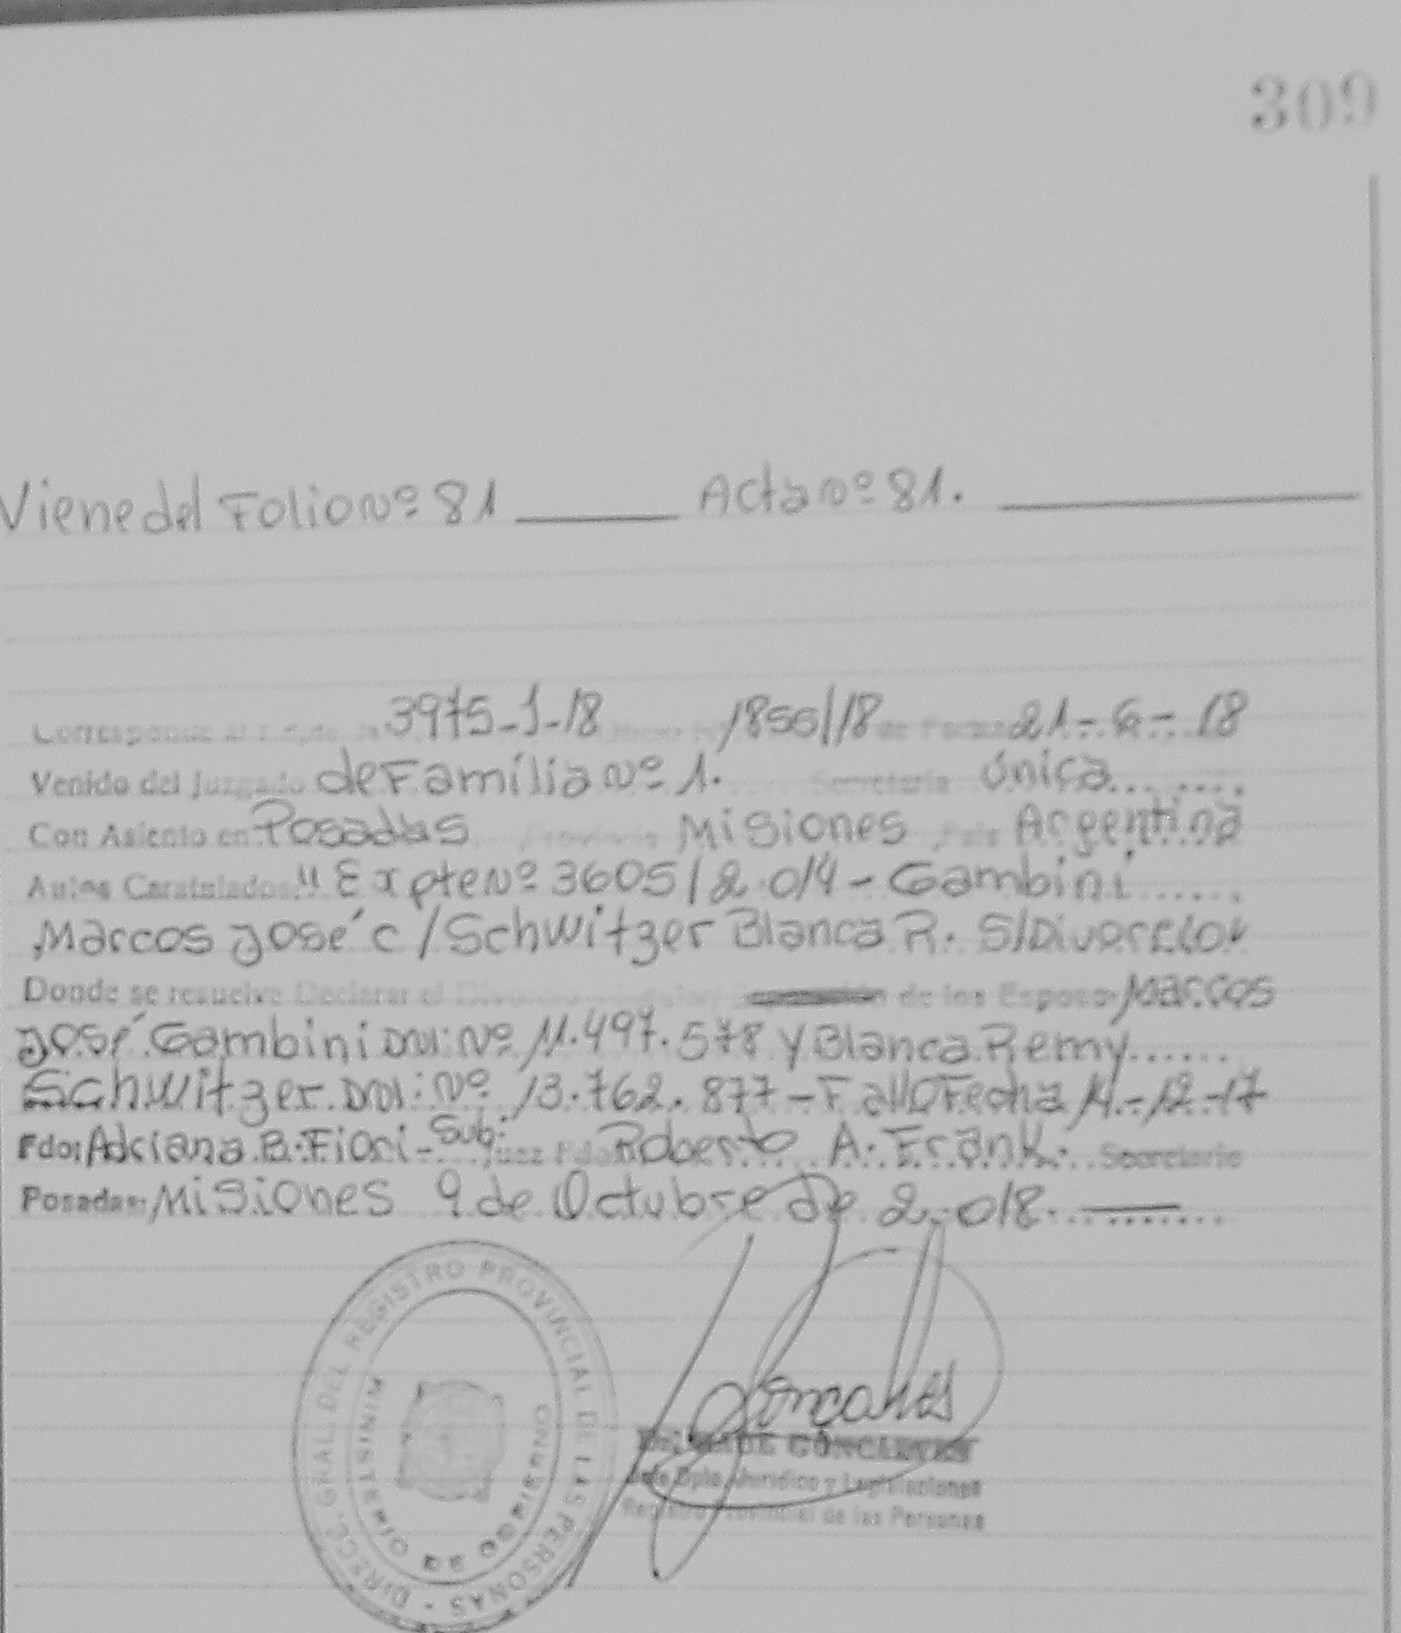 309
Viene del Folio Nº 81 Acta Nº 81.
Corresponde al Expte. Nº 3975-1-18 1856/18 de Fecha 21-6-18
Venido del Juzgado de Família Nº 1. Secretaría única
Con Asiento en Posadas Provincia Misiones País Argentina
Autos Caratulados "Expte Nº 3605/2.014 - Gambini
Marcos José c/Schwitzer Blanca R. S/Divorcio"
Donde se resuelve Declarar el Divorcio de los Esposos Marcos
José Gambini DNI: Nº 11.497.578 y Blanca Remy
Schwitzer DNI: Nº 13.762.877 - Fallo Fecha 11-12-17
Fdo: Adriana B. Fiori - Sub. Juez Fdo Roberto A. Frank. Secretario
Posadas: Misiones 9 de Octubre de 2.018.
DIRECC. GRAL. DEL REGISTRO PROVINCIAL DE LAS PERSONAS -
MINISTERIO DE GOBIERNO
GONCALVES
Jefe Dpto. Jurídico y Legislaciones
Registro Provincial de las Personas